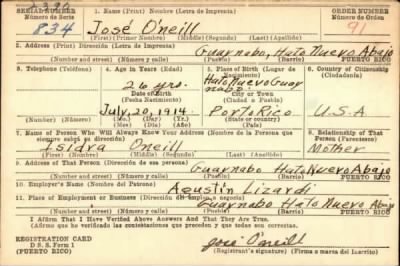 2390
SERIAL NUMBER 1. Name (Print) Nombre (Letra de Imprenta) ORDER NUMBER
Número de Serie Número de Orden
834 José O'neill 91
(First) (Primer Nombre) (Middle) (Segundo Nombre) (Last) (Apellido)
2. Address (Print) Dirección (Letra de Imprenta)
Guaynabo, Hato Nuevo Abajo
(Number and street) (Número y calle) PUERTO RICO
3. Telephone (Teléfono) 4. Age in Years (Edad) 5. Place of Birth (Lugar de Nacimiento) 6. Country of Citizenship (Ciudadanía)
26 yrs. Hato Nuevo Guaynabo
Date of Birth City or Town
(Fecha Nacimiento) (Ciudad o Pueblo)
July, 20, 1914. Porto Rico U.S.A
(Exchange) (Número) (Mo.) (Day) (Yr.) (State or country) (País)
7. Name of Person Who Will Always Know Your Address (Nombre de la Persona que siempre sabrá su dirección) 8. Relationship of That Person (Parentesco)
Isidra Oneill Mother
(Mr., Mrs., Miss) (First) (Primer) (Middle) (Segundo) (Last) (Apellido)
9. Address of That Person (Dirección de esa persona)
Guaynabo Hato Nuevo Abajo
(Number and street) (Número y calle) PUERTO RICO
10. Employer's Name (Nombre del Patrono)
Agustin Lizardi
11. Place of Employment or Business (Dirección del empleo o negocio)
Guaynabo Hato Nuevo Abajo
(Number and street) (Número y calle) PUERTO RICO
I Affirm That I Have Verified Above Answers And That They are True.
Afirmo que he verificado las contestaciones que preceden y que todas son correctas.
REGISTRATION CARD
D S S. Form 1
(PUERTO RICO)
José O'neill
(Registrant's signature) (Firma o marca del Inscrito)